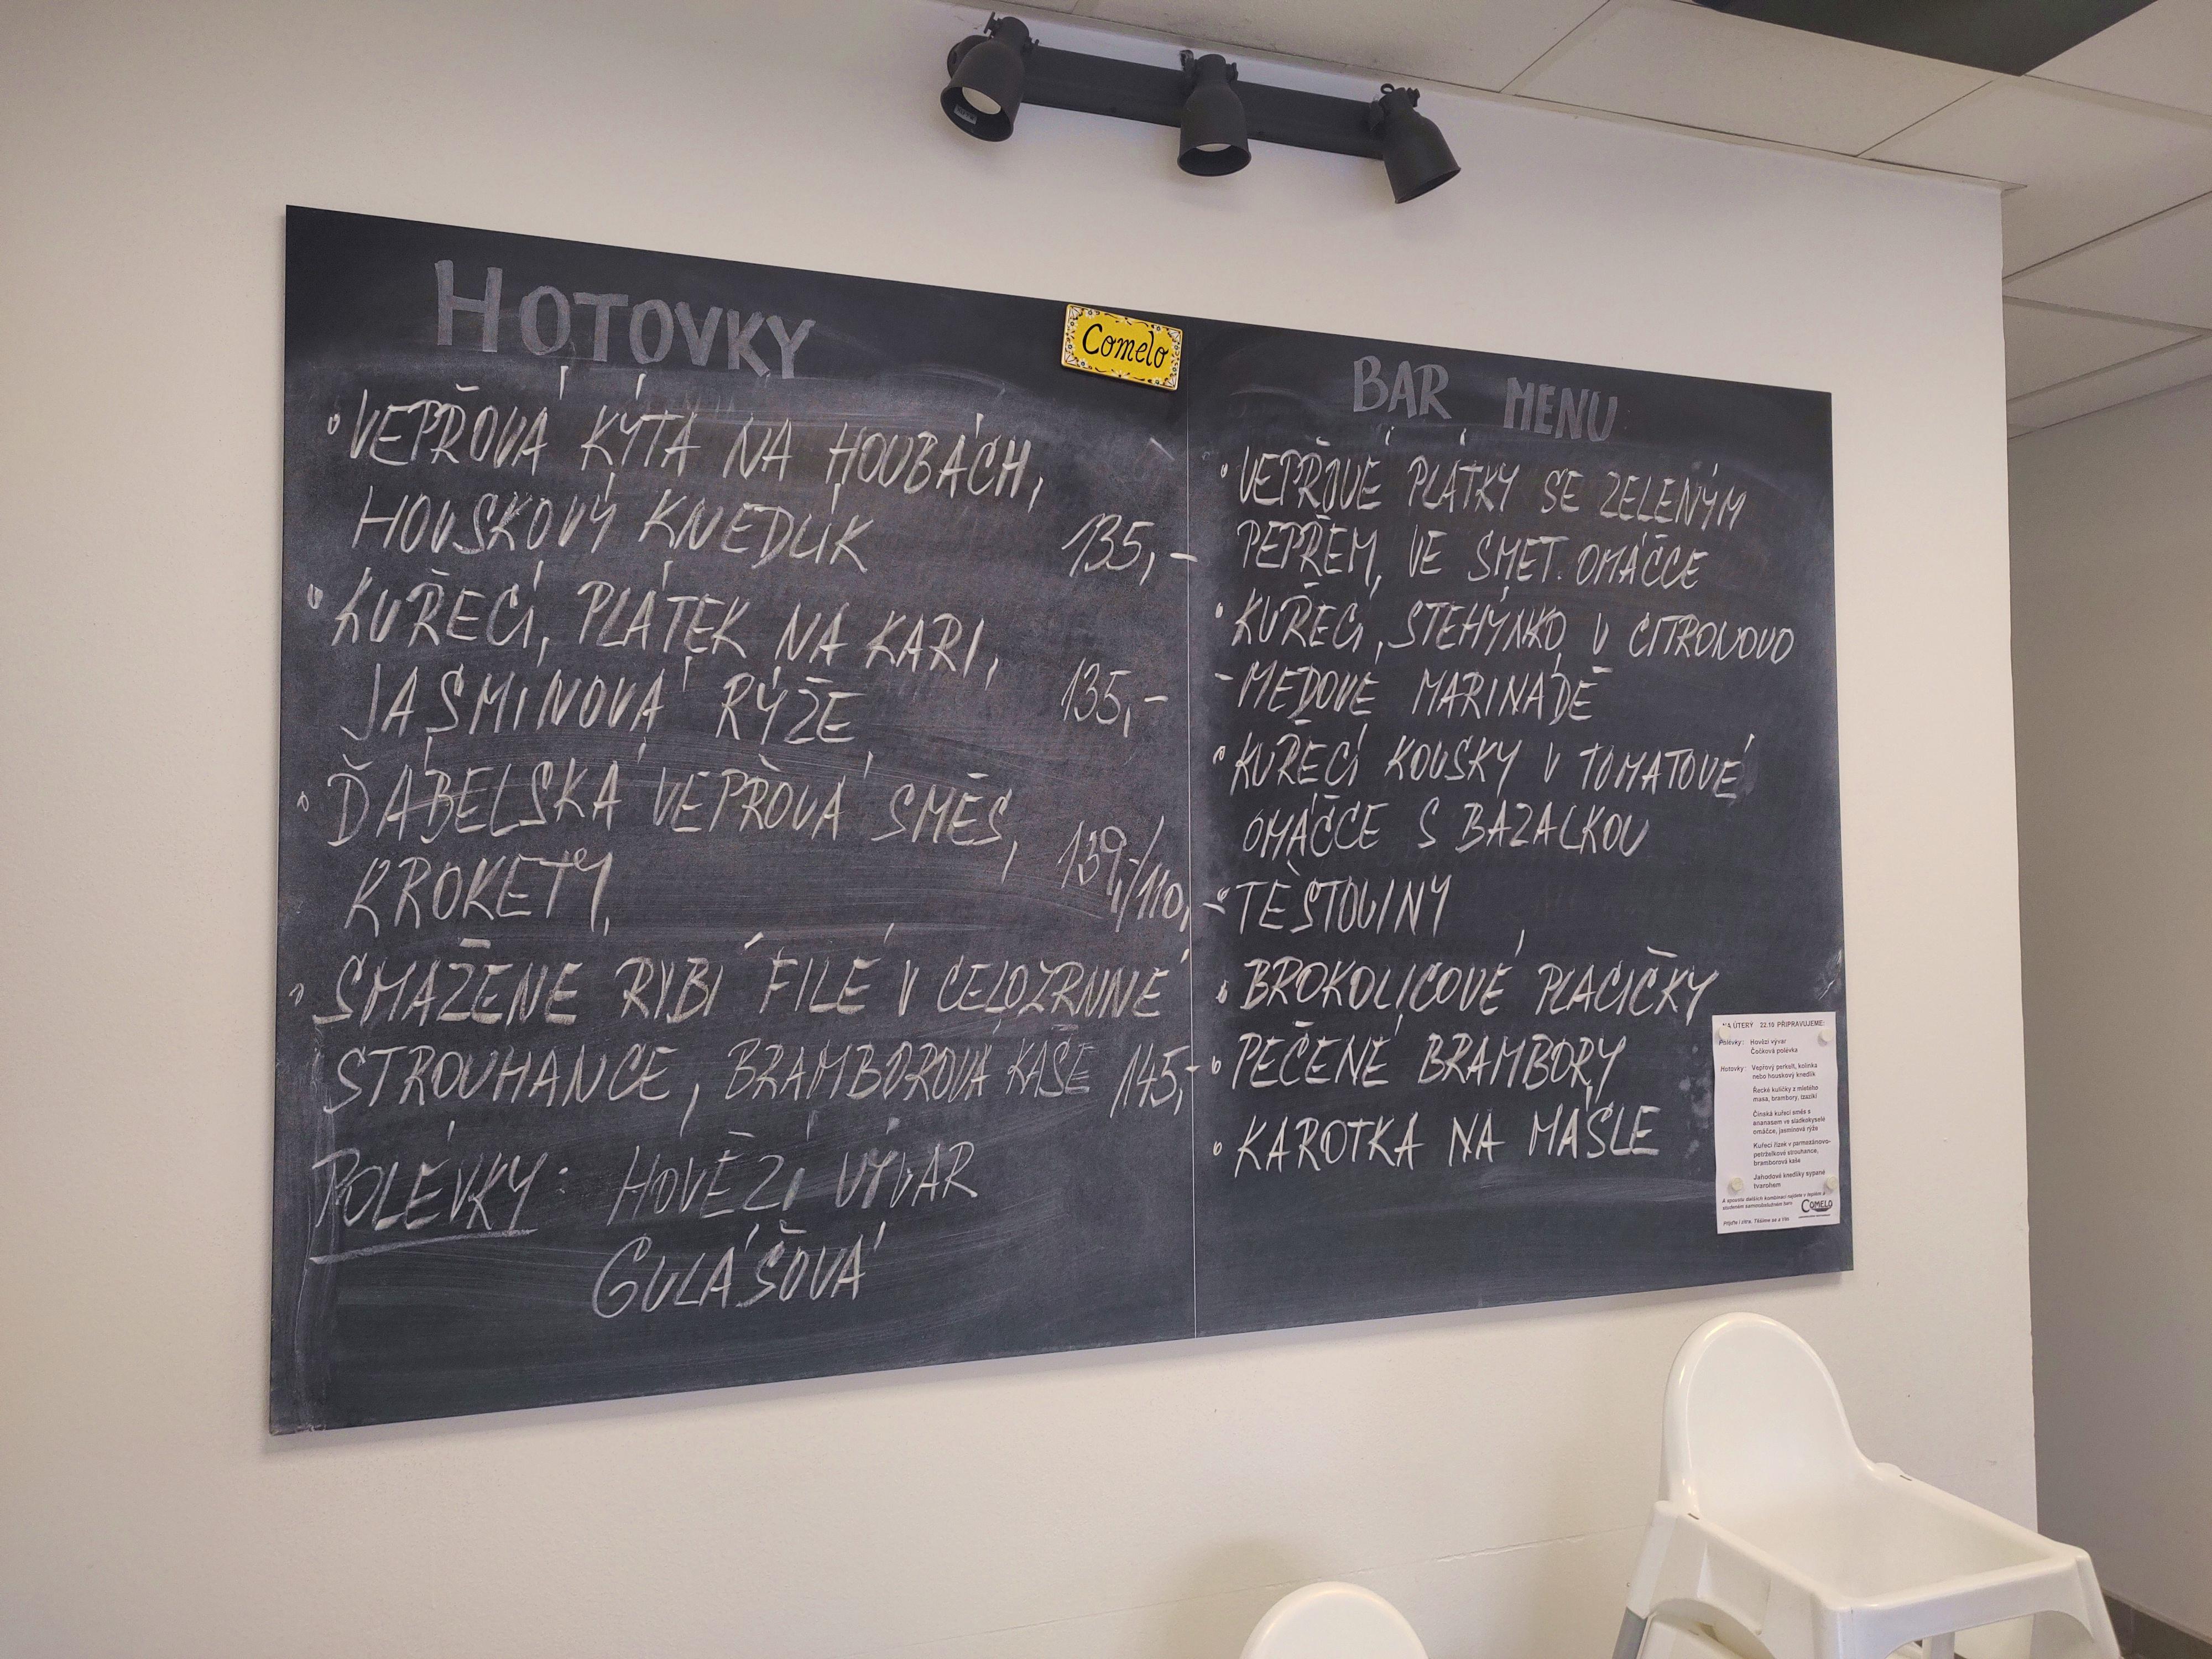 HOTOVKY
Comelo
• VEPŘOVÁ KÝTA NA HOUBÁCH,
HOUSKOVÝ KNEDLÍK 135,-
• KUŘECÍ PLÁTEK NA KARI,
JASMINOVÁ RÝŽE 135,-
• ĎÁBELSKÁ VEPŘOVÁ SMĚS,
KROKETY 139,-/110,-
• SMAŽENÉ RYBÍ FILÉ V CELOZRNNÉ
STROUHANCE, BRAMBOROVÁ KAŠE 145,-
POLÉVKY: HOVĚZÍ VÝVAR
GULÁŠOVÁ
BAR MENU
• VEPŘOVÉ PLÁTKY SE ZELENÝM
PEPŘEM, VE SMET. OMÁČCE
• KUŘECÍ STEHÝNKO V CITRONOVO
- MEDOVÉ MARINÁDĚ
• KUŘECÍ KOUSKY V TOMATOVÉ
OMÁČCE S BAZALKOU
• TĚSTOVINY
• BROKOLICOVÉ PLACIČKY
• PEČENÉ BRAMBORY
• KAROTKA NA MÁSLE
NA ÚTERÝ 22.10 PŘIPRAVUJEME:
Polévky: Hovězí vývar
Čočková polévka
Hotovky: Vepřový perkelt, kolínka
nebo houskový knedlík
Řecké kuličky z mletého
masa, brambory, tzaziki
Čínská kuřecí směs s
ananasem ve sladkokyselé
omáčce, jasmínová rýže
Kuřecí řízek v parmezánovo-
petrželkové strouhance,
bramborová kaše
Jahodové knedlíky sypané
tvarohem
A spoustu dalších kombinací najdete v teplém a
studeném samoobslužném baru
Přijďte i zítra. Těšíme se a Vás
COMELO